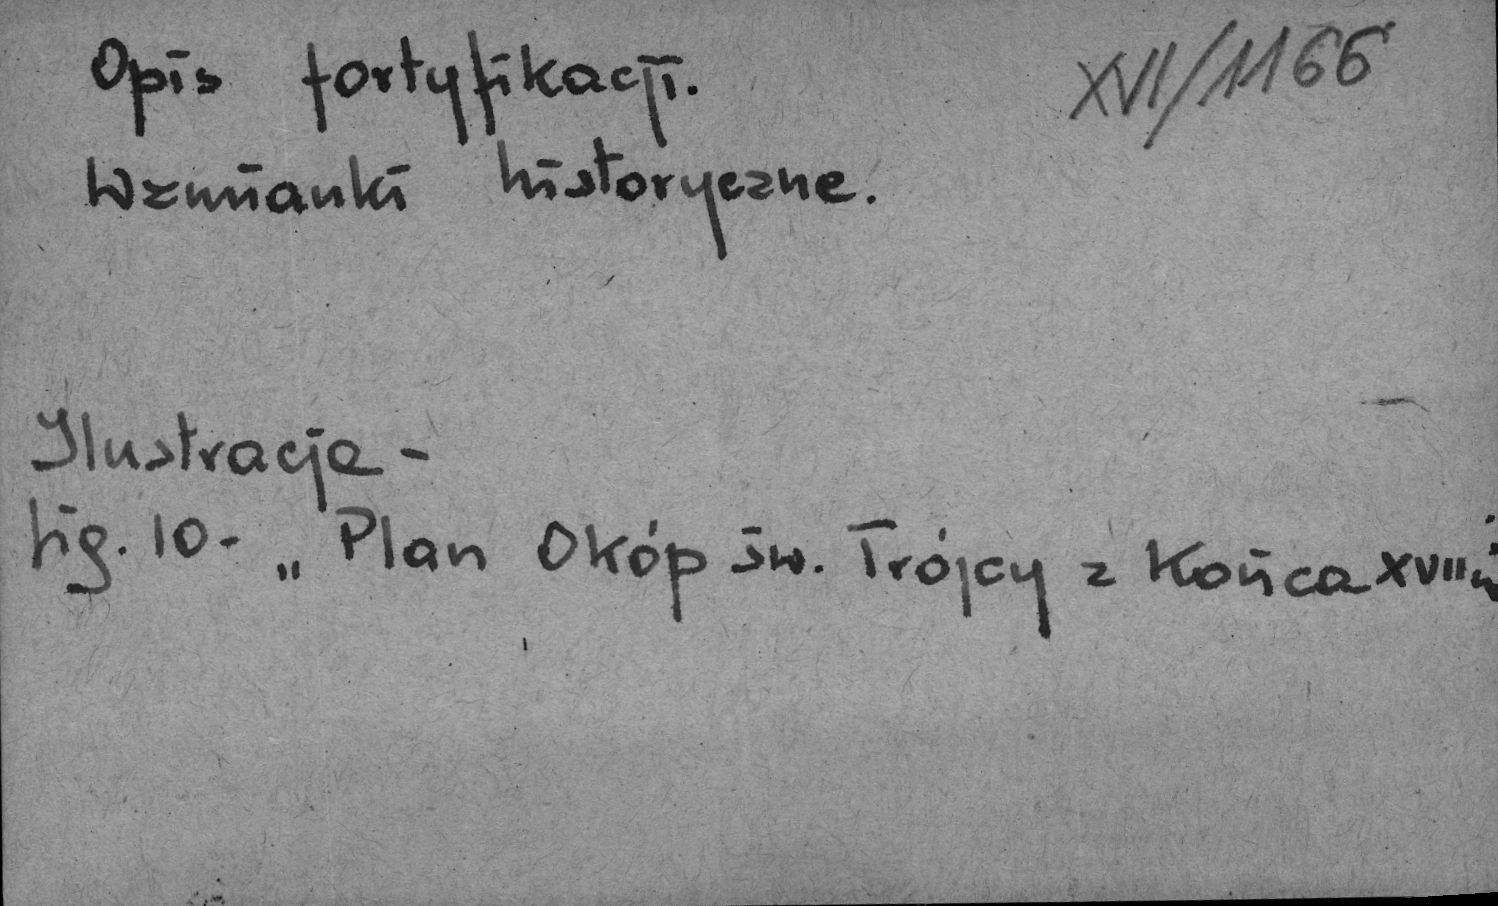 Opis fortyfikacji.
XVI/1166
Wzmianki historyczne.
Ilustracje -
fig. 10 - „Plan Okóp św. Trójcy z końca XVII w